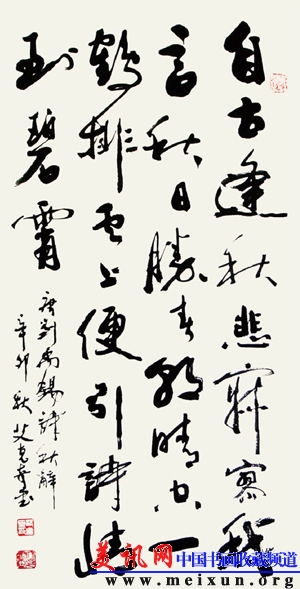 自古逢秋悲寂寥我
言秋日勝春朝晴空一
鶴排雲上便引詩情
到碧霄
唐劉禹錫詩秋辭
辛卯秋艾克書
美讯网 中国书画收藏频道
www.meixun.org